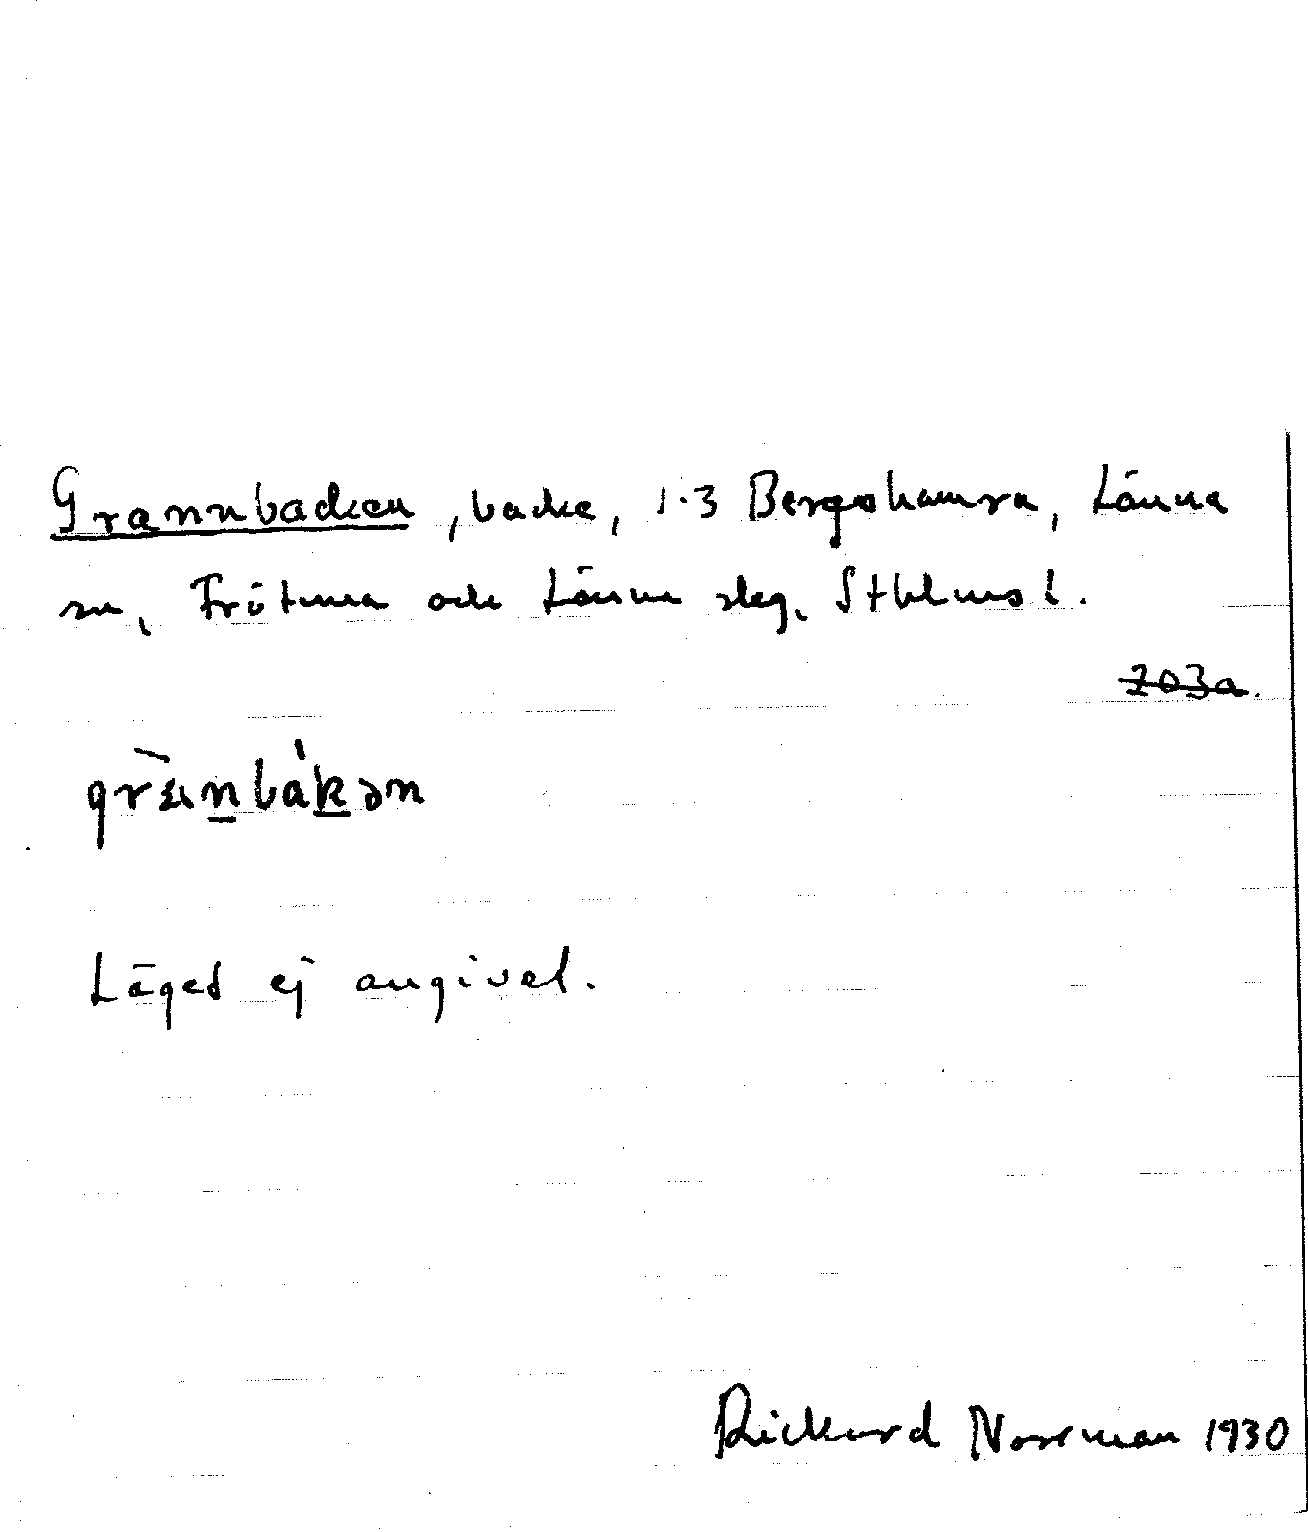 Grannbacken, backe, 1.3 Bergshamra, Länna
sn, Frötuna och Länna skg, Sthlms l.
203a.
Läget ej angivet.
Rickard Norrman 1930